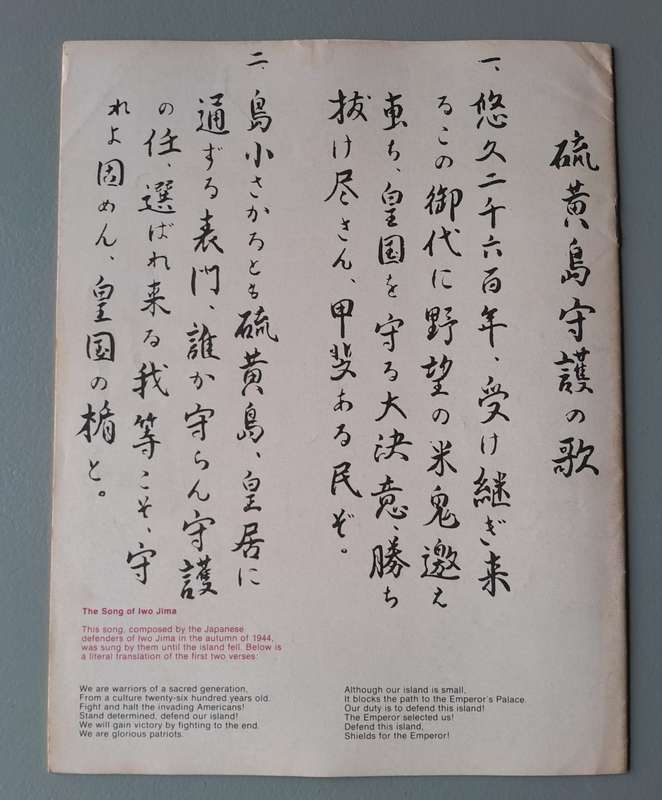 硫黄島守護の歌
一、悠久二千六百年、受け継ぎ来
るこの御代に野望の米鬼邀え
、皇国を守る大決意、勝ち
抜け尽さん、甲斐ある民ぞ。
二、島小さかろとも硫黄島、皇居に
通ずる表門、誰か守らん守護
の任、選ばれ来る我等こそ、守
れよ固めん、皇国の楯と。
The Song of Iwo Jima
This song, composed by the Japanese
defenders of Iwo Jima in the autumn of 1944,
was sung by them until the island fell. Below is
a literal translation of the first two verses:
We are warriors of a sacred generation,
From a culture twenty-six hundred years old.
Fight and halt the invading Americans!
Stand determined, defend our island!
We will gain victory by fighting to the end.
We are glorious patriots.
Although our island is small,
It blocks the path to the Emperor's Palace.
Our duty is to defend this island!
The Emperor selected us!
Defend this island,
Shields for the Emperor!